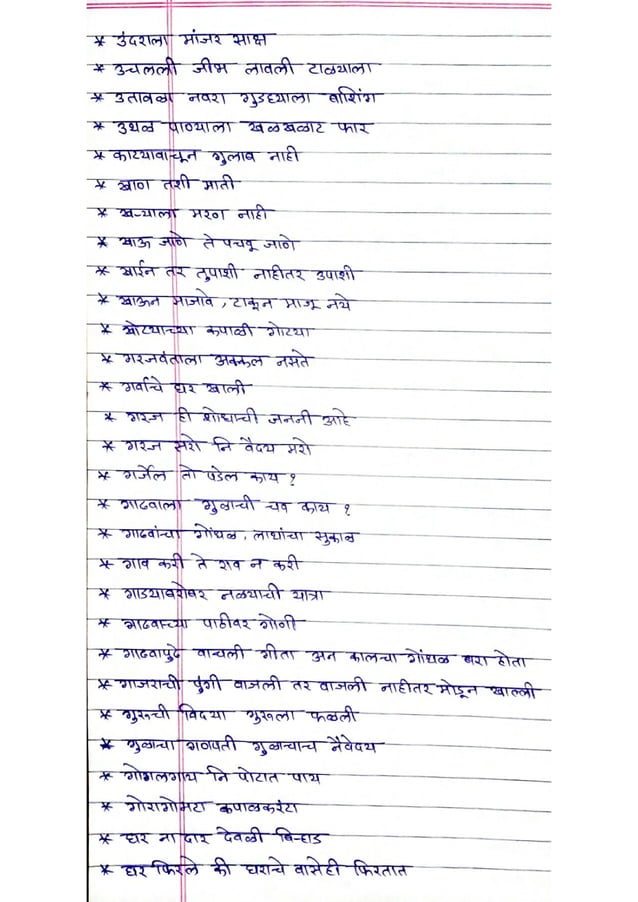 * उंदराला मांजर साक्ष
* उचलली जीभ लावली टाळ्याला
* उतावळा नवरा गुडघ्याला बाशिंग
* उथळ पाण्याला खळखळाट फार
* काट्यावाचून गुलाब नाही
* खाण तशी माती
* खऱ्याला मरण नाही
* खाऊ जाणे ते पचवू जाणे
* खाईन तर तुपाशी नाहीतर उपाशी
* खाऊन माजावे, टाकून माजू नये
* खोट्याच्या कपाळी गोट्या
* गरजवंताला अक्कल नसते
* गर्वाचे घर खाली
* गरज ही शोधाची जननी आहे
* गरज सरो नि वैदय मरो
* गर्जेल तो पडेल काय ?
* गाढवाला गुळाची चव काय ?
* गाढवांचा गोंधळ, लाथांचा सुकाळ
* गाव करी ते राव न करी
* गाड्याबरोबर नळ्याची यात्रा
* गाढवाच्या पाठीवर गोणी
* गाढवापुढे वाचली गीता अन कालचा गोंधळ बरा होता
* गाजराची पुंगी वाजली तर वाजली नाहीतर मोडून खाल्ली
* गुरूची विदया गुरूला फळली
* गुळाचा गणपती गुळाचाच नैवेदय
* गोगलगाय नि पोटात पाय
* गोरागोमटा कपाळकरंटा
* घर ना दार देवळी बिऱ्हाड
* घर फिरले की घराचे वासेही फिरतात